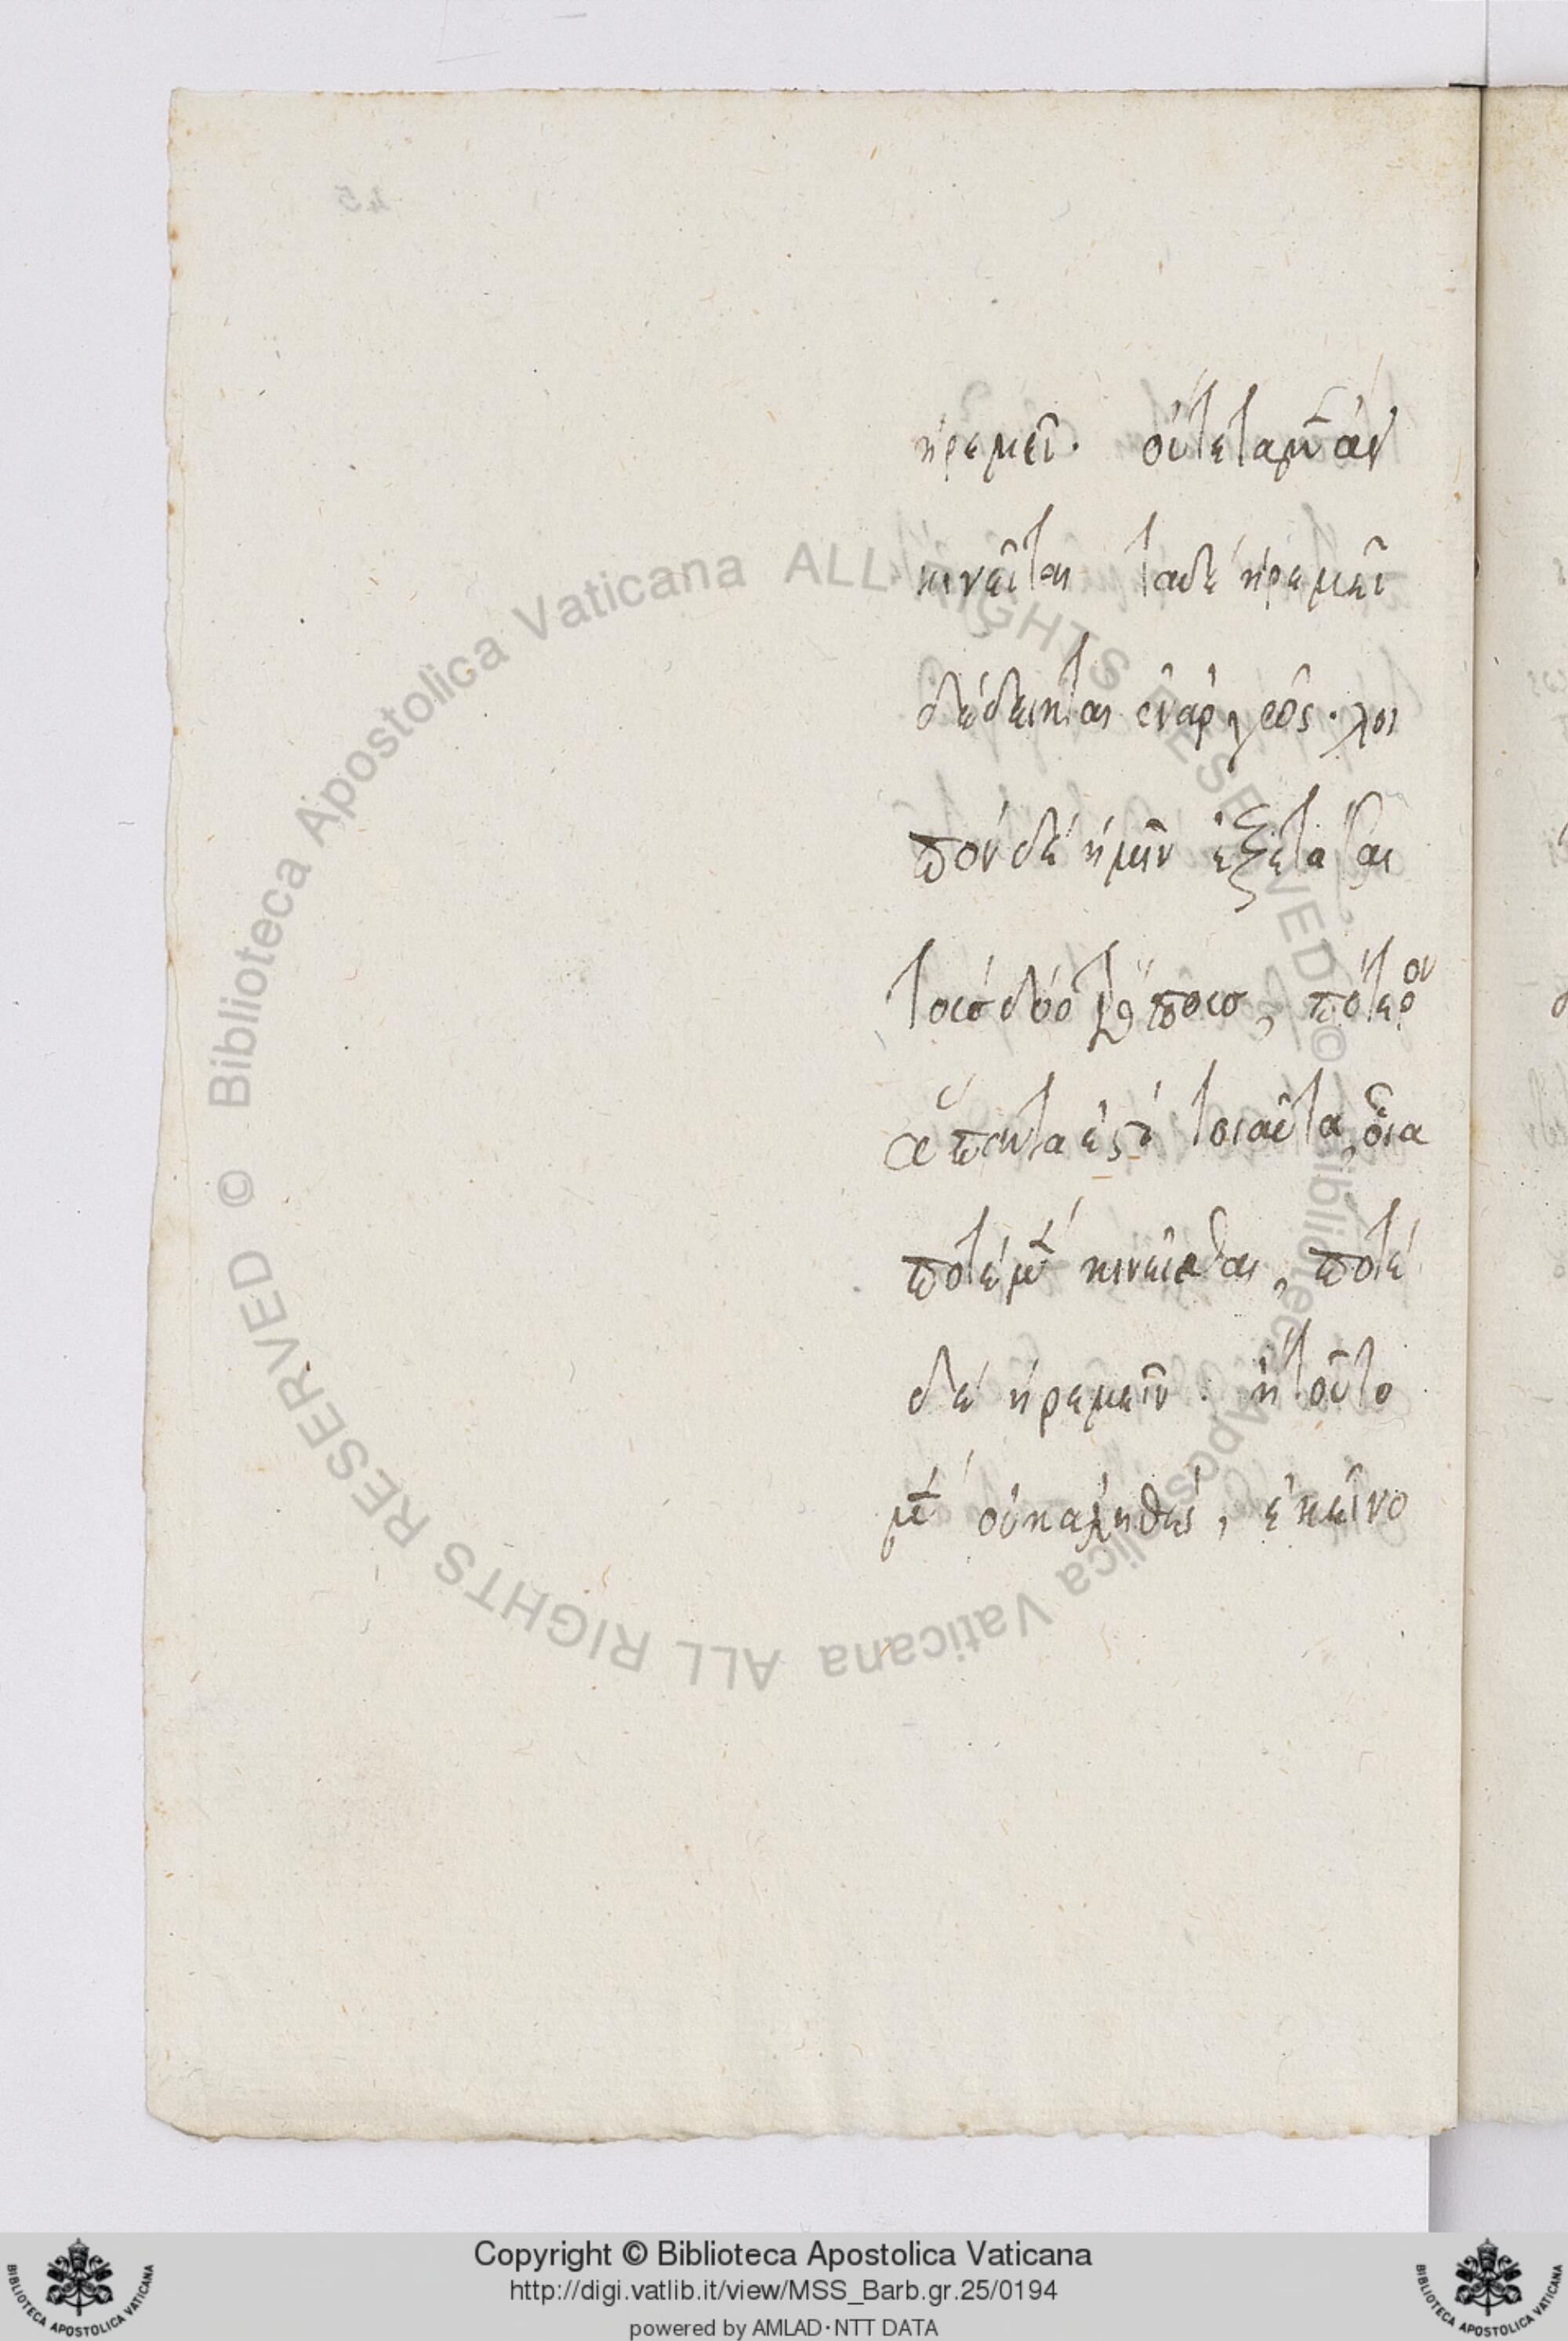 ἠρεμεῖ. οὔτε τὰ μ(ὲν) ἀεὶ
κινεῖται τὰ δὲ ἠρεμεῖ
δέδεικται ἐναργῶς. λοι
πὸν δὲ ἡμῖν ἐξετάσαι
τοῖσ δύο τρόποισ, πότερον
ἅπαντά ἐστι τοιαῦτα, οἷα
ποτὲ μ(ὲν) κινεῖσθαι, ποτὲ
δὲ ἠρεμεῖν. ἢ τοῦτο
μ(ὲν) οὐκ ἀληθὲς, ἐκεῖνο
45
Biblioteca Apostolica Vaticana ALL RIGHTS RESERVED ©
Biblioteca Apostolica Vaticana ALL RIGHTS RESERVED ©
Copyright © Biblioteca Apostolica Vaticana
http://digi.vatlib.it/view/MSS_Barb.gr.25/0194
powered by AMLAD·NTT DATA
BIBLIOTECA APOSTOLICA VATICANA
BIBLIOTECA APOSTOLICA VATICANA